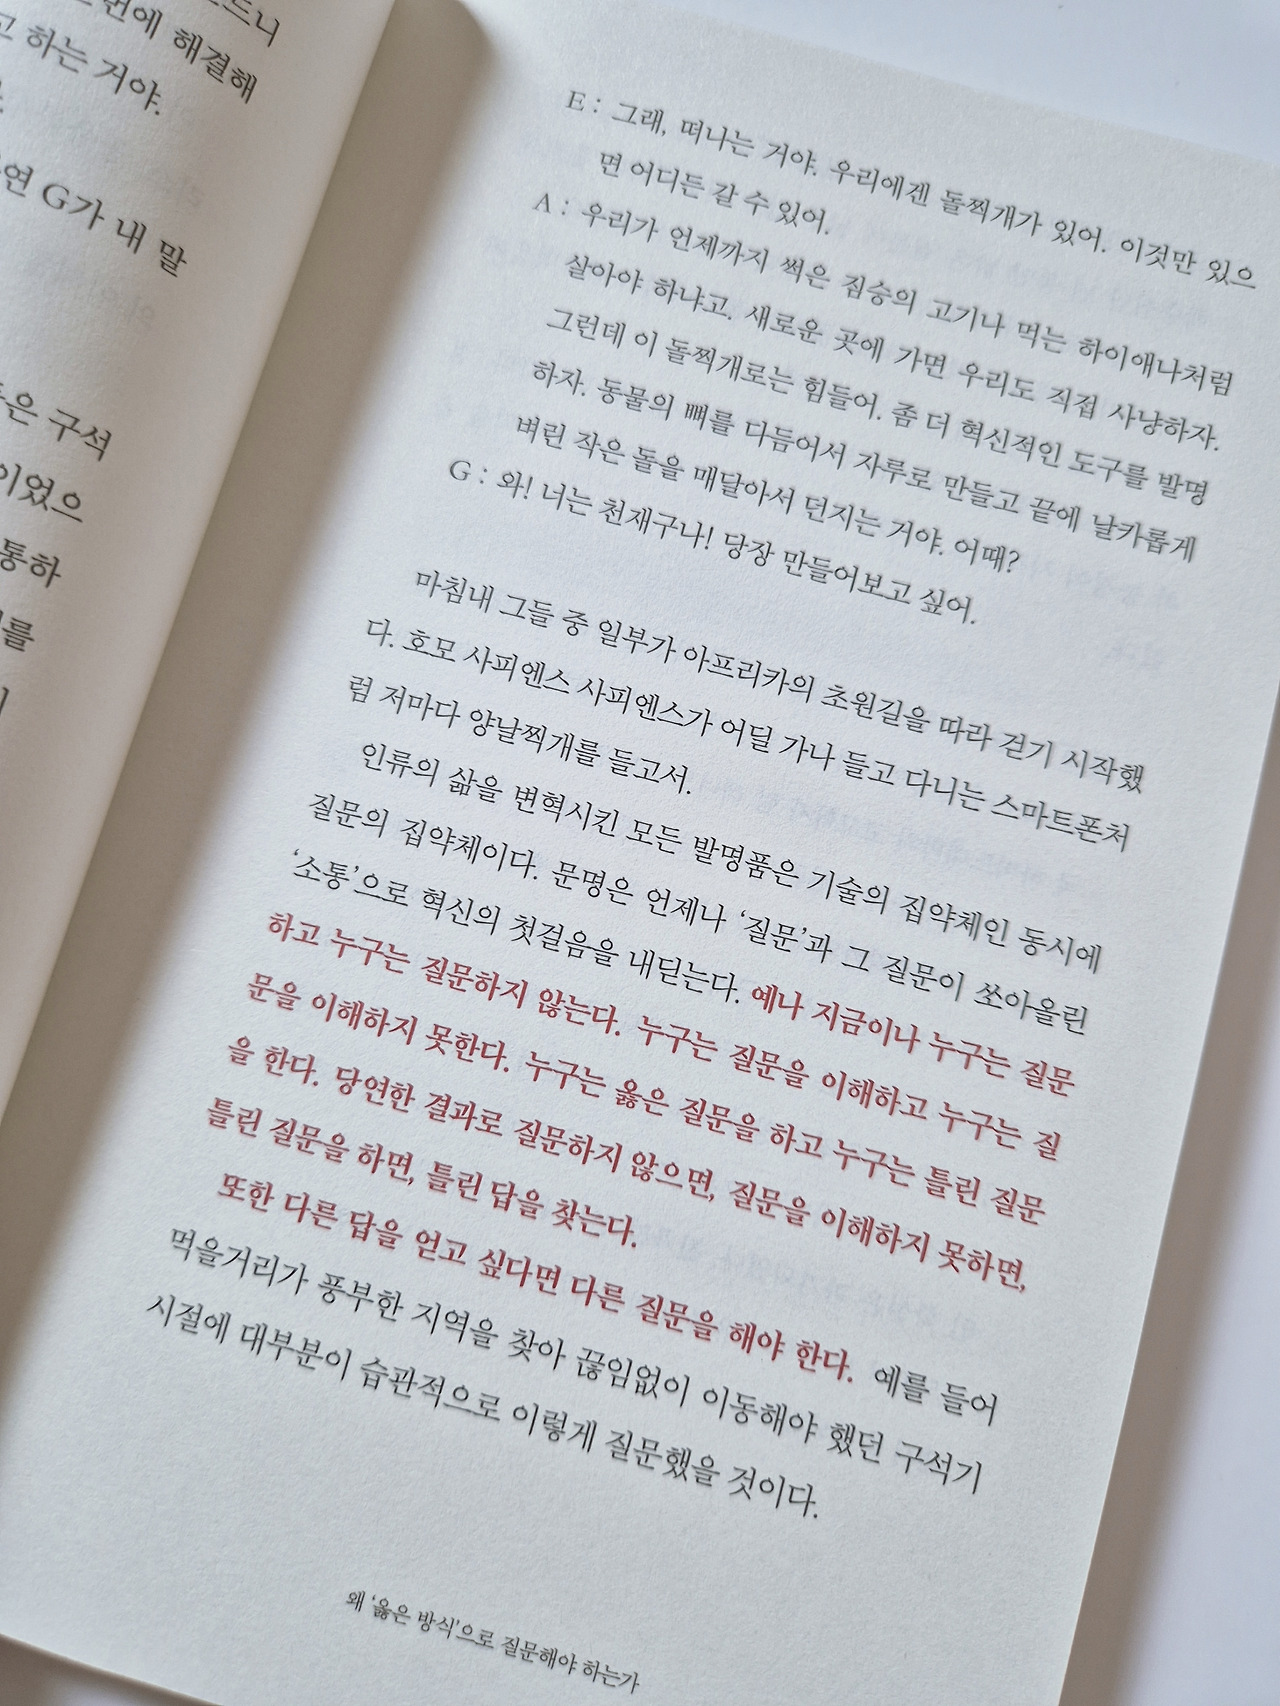 하는 거야.
해결해
연 G가 내 말
은 구석
이었으
통하
를
E : 그래, 떠나는 거야. 우리에겐 돌찍개가 있어. 이것만 있으
면 어디든 갈 수 있어.
A : 우리가 언제까지 썩은 짐승의 고기나 먹는 하이애나처럼
살아야 하냐고. 새로운 곳에 가면 우리도 직접 사냥하자.
그런데 이 돌찍개로는 힘들어. 좀 더 혁신적인 도구를 발명
하자. 동물의 뼈를 다듬어서 자루로 만들고 끝에 날카롭게
벼린 작은 돌을 매달아서 던지는 거야. 어때?
G : 와! 너는 천재구나! 당장 만들어보고 싶어.
마침내 그들 중 일부가 아프리카의 초원길을 따라 걷기 시작했
다. 호모 사피엔스 사피엔스가 어딜 가나 들고 다니는 스마트폰처
럼 저마다 양날찍개를 들고서.
인류의 삶을 변혁시킨 모든 발명품은 기술의 집약체인 동시에
질문의 집약체이다. 문명은 언제나 ‘질문’과 그 질문이 쏘아올린
‘소통’으로 혁신의 첫걸음을 내딛는다. 예나 지금이나 누구는 질문
하고 누구는 질문하지 않는다. 누구는 질문을 이해하고 누구는 질
문을 이해하지 못한다. 누구는 옳은 질문을 하고 누구는 틀린 질문
을 한다. 당연한 결과로 질문하지 않으면, 질문을 이해하지 못하면,
틀린 질문을 하면, 틀린 답을 찾는다.
또한 다른 답을 얻고 싶다면 다른 질문을 해야 한다. 예를 들어
먹을거리가 풍부한 지역을 찾아 끊임없이 이동해야 했던 구석기
시절에 대부분이 습관적으로 이렇게 질문했을 것이다.
왜 ‘옳은 방식’으로 질문해야 하는가